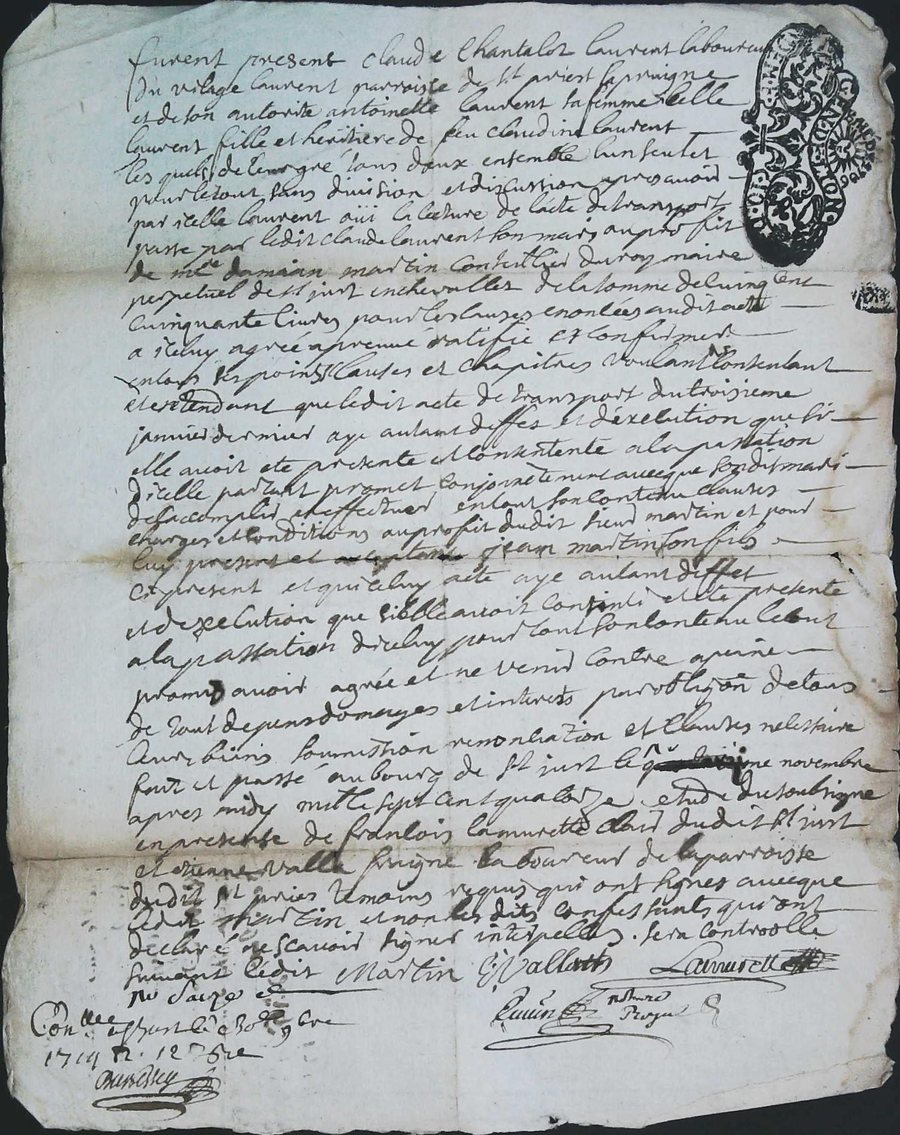 furent present Claude Chantalot laurent laboureur
du vilage laurent parroisse de st priest laprugne
et de son autorite antoinette laurent sa femme
laurent fille et heritiere de feu claudine laurent
les quels de leur gré tous deux ensemble lun seul et
pour le tout sans division et discussion apres avoir
par icelle laurent oüi la lecture de lacte de transport
passé par ledit claude laurent son mary au profit
de mre damian martin conseillier du roy maire
perpetuel de st just en chevallet de la somme de cinq cent
cinquante livres pour les causes enoncées audit acte
a iceluy agreé apreuué ratifié et confirmer
en tous ses points clauses et chapitres voulant consentant
et entendant que ledit acte de transport du troisieme
janvier dernier aye autant deffes et dexecution que si
elle avoit ete presente et consentente a la passation
dicelle partant promet conjointement avecque sondit mari
de laccomplir et effectuer en tout son contenu clauses
charges et conditions au profit dudit sieur martin et pour
luy present et acceptant jean martin son fils
cy present et quiceluy acte aye autant deffet
et dexecution que si elle avoit consenti et ete presente
a la passation diceluy pour tout son contenu le tout
promis avoir agreé et ne venir contre a peine
de tout depens domages et interets par obligon de tous
leurs biens soumission renonciation et clauses necessaire
fait et passé au bourg de st just le novembre
apres midy mille sept cent quatorze etude du soubsigné
en presence de francois lamurette clair dudit st just
et etienne valle laboureur de la parroisse
dudit st pries temoins requis qui ont signes avecque
ledit martin et non les dits confessants qui ont
declaré ne scavoir signer interpelles. sera controolle
suivant ledit Martin E Vallat Lamurette
notaire
Royal
Conllé a st just le 9bre
1714 R. 12